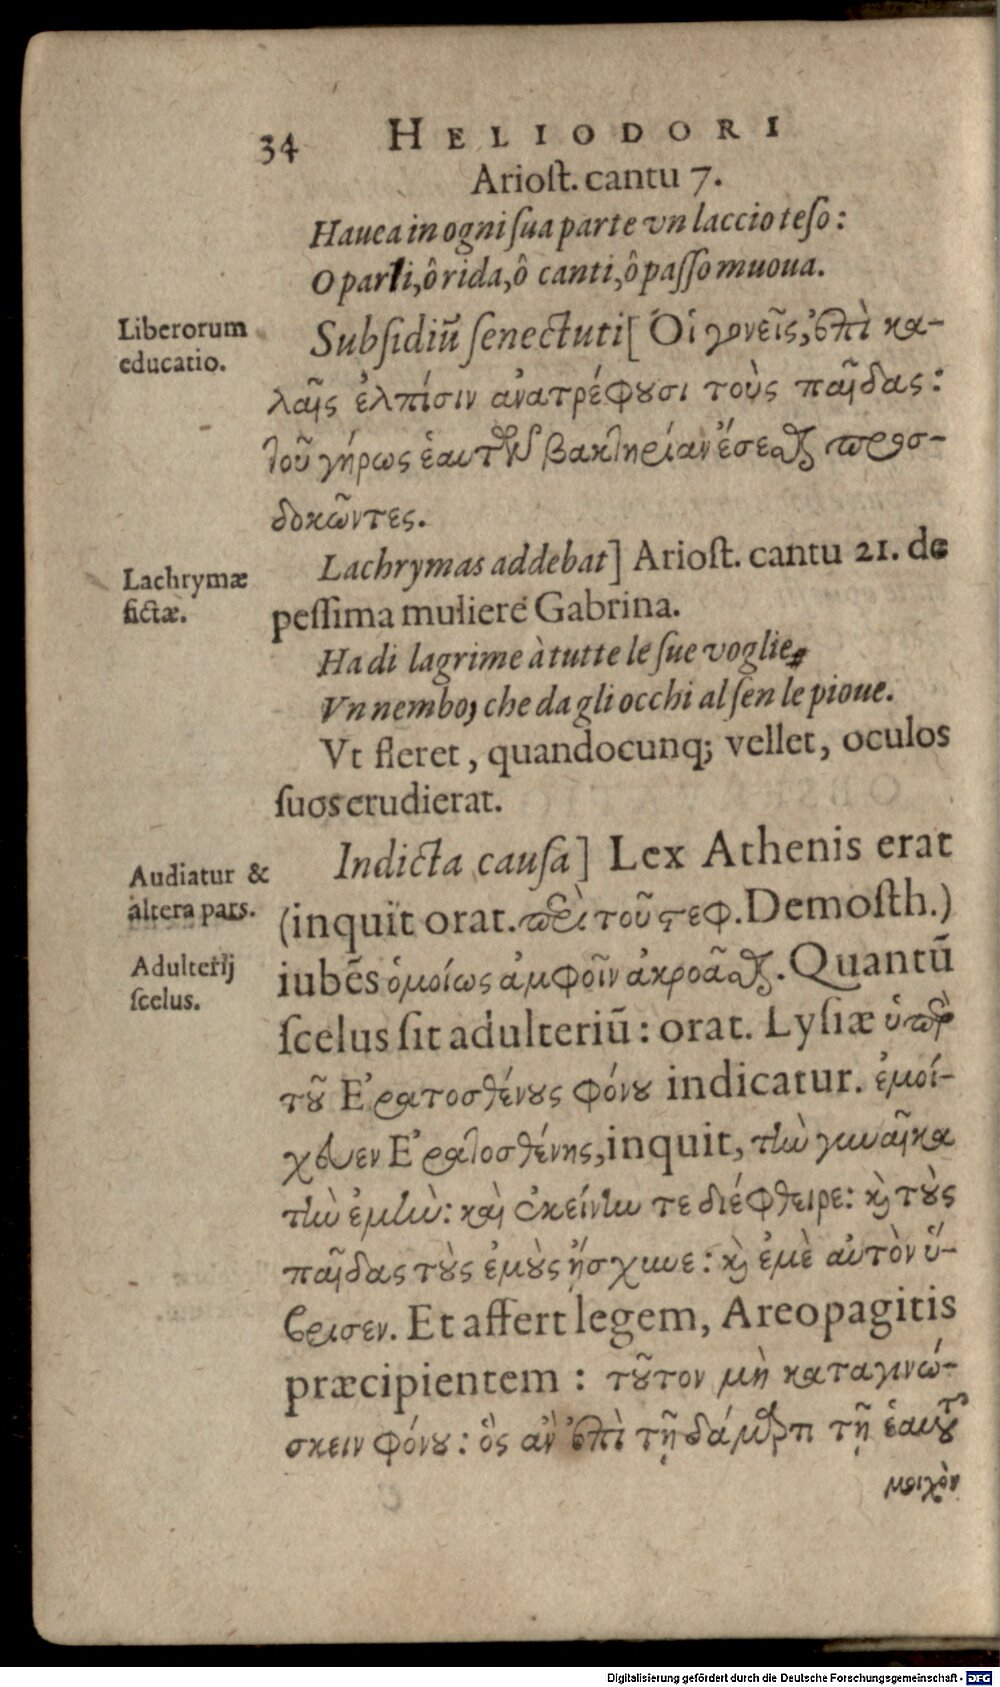 34 HELIODORI
Ariost. cantu 7.
Hauea in ogni sua parte vn laccio teso:
O parli, ô rida, ô canti, ô passo muoua.
Liberorum
educatio.
Subsidiũ senectuti[ Οἱ γονεῖς, ἐπὶ κα-
λαῖς ἐλπίσιν ἀνατρέφουσι τοὺς παῖδας:
τοῦ γήρως ἑαυτῶν βακτηρίαν ἔσεσθαι προσ-
δοκῶντες.
Lachrymæ
fictæ.
Lachrymas addebat] Ariost. cantu 21. de
pessima muliere Gabrina.
Ha di lagrime à tutte le sue voglie,
Vn nembo, che da gli occhi al sen le pioue.
Vt fleret, quandocunq; vellet, oculos
suos erudierat.
Audiatur &
altera pars.
Indicta causa] Lex Athenis erat
(inquit orat. περὶ τοῦ στεφ. Demosth.)
Adulterij
scelus.
iubẽs ὁμοίως ἀμφοῖν ἀκροᾶσθαι. Quantũ
scelus sit adulteriũ: orat. Lysiæ ὑπὲρ
τοῦ Ἐρατοσθένους φόνου indicatur. ἐμοί-
χευεν Ἐρατοσθένης, inquit, τὴν γυναῖκα
τὴν ἐμὴν: καὶ ἐκείνην τε διέφθειρε: καὶ τοὺς
παῖδας τοὺς ἐμοὺς ᾔσχυνε: καὶ ἐμὲ αὐτὸν ὕ-
βρισεν. Et affert legem, Areopagitis
præcipientem: τοῦτον μὴ καταγινώ-
σκειν φόνου: ὃς ἂν ἐπὶ τῇ δάμαρτι τῇ ἑαυτοῦ
μοιχὸν
Digitalisierung gefördert durch die Deutsche Forschungsgemeinschaft - DFG